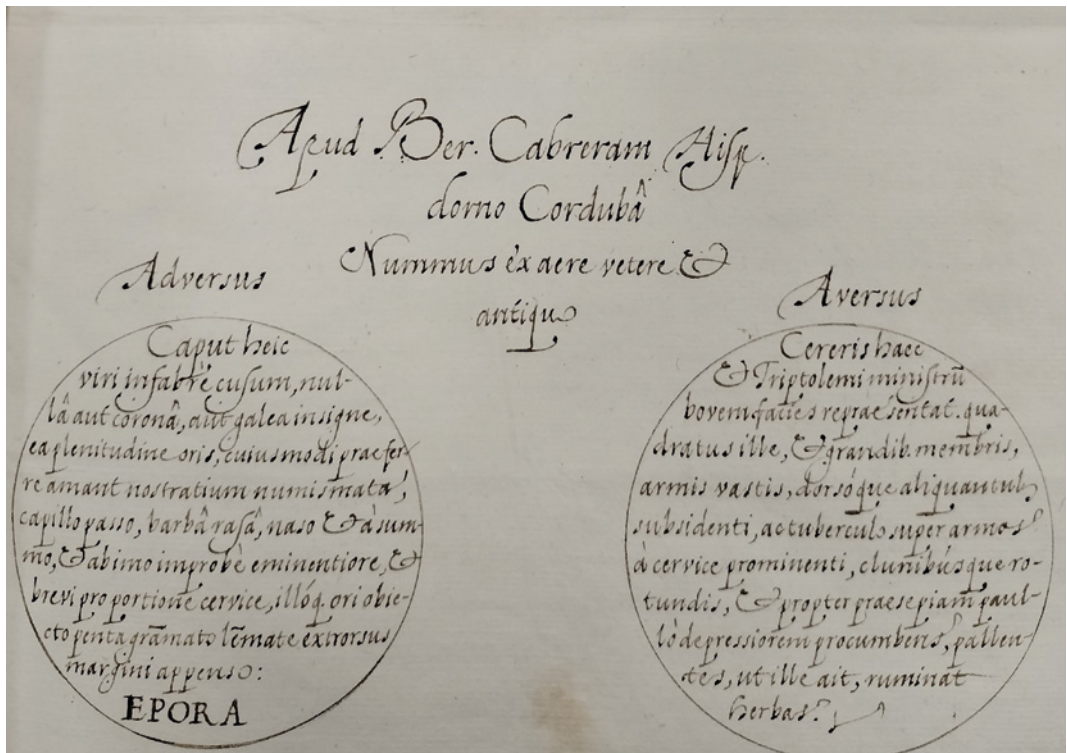 Apud Ber. Cabreram Hisp.
domo Cordubâ
Nummus ex aere vetere &
antiquo
Adversus
Caput heic
viri infabrè cusum, nul-
lâ aut coronâ, aut galea insigne,
ea plenitudine oris, cuiusmodi praefer-
re amant nostratium numismata,
capillo passo, barbâ rasâ, naso & à sum-
mo, & ab imo improbè eminentiore, &
brevi proportione cervice, illóq. ori obie-
cto pentagram̄ato lēmate extrorsus
margini appenso:
EPORA
Aversus
Cereris haec
& Triptolemi ministrū
bovem facies repraesentat. qua-
dratus ille, & grandib. mem̄bris,
armis vastis, dorsóque aliquantulū
subsidenti, ac tuberculo super armos
à cervice prominenti, clunibúsque ro-
tundis, & propter praesepiam̄ paul-
lò depressiorem procumbens, pallen-
tes, ut ille ait, ruminat
herbas.